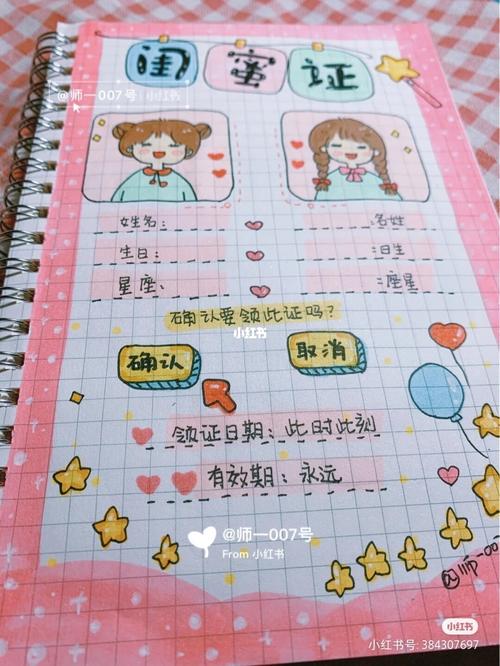 闺蜜证
@师一007号 小红书
姓名： :名姓
生日： :日生
星座： :座星
确认要领此证吗？
小红书
确认 取消
领证日期：此时此刻
有效期：永远
@师一007号
From 小红书
@师一00
小红书
小红书号: 384307697